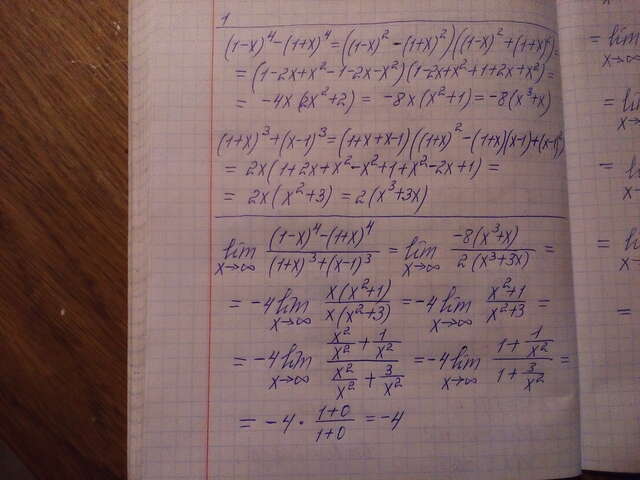 1
(1-x)^4-(1+x)^4=((1-x)^2-(1+x)^2)((1-x)^2+(1+x)^2)=
=(1-2x+x^2-1-2x-x^2)(1-2x+x^2+1+2x+x^2)=
= -4x(2x^2+2) = -8x(x^2+1)=-8(x^3+x)
(1+x)^3+(x-1)^3=(1+x+x-1)((1+x)^2-(1+x)(x-1)+(x-1)^2)
= 2x(1+2x+x^2-x^2+1+x^2-2x+1) =
= 2x(x^2+3) = 2(x^3+3x)
lim x→∞ ((1-x)^4-(1+x)^4)/((1+x)^3+(x-1)^3) = lim x→∞ (-8(x^3+x))/(2(x^3+3x)) =
= -4 lim x→∞ (x(x^2+1))/(x(x^2+3)) = -4 lim x→∞ (x^2+1)/(x^2+3) =
= -4 lim x→∞ (x^2/x^2 + 1/x^2)/(x^2/x^2 + 3/x^2) = -4 lim x→∞ (1+1/x^2)/(1+3/x^2) =
= -4 · (1+0)/(1+0) = -4
= lim x→∞
= lim
= l
= l
=